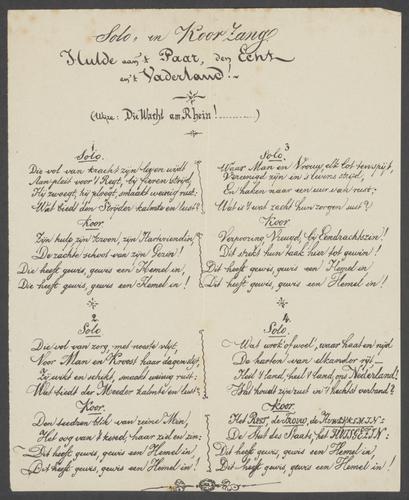 Solo, en Koor Zang
Hulde aan 't Paar, den Echt
en 't Vaderland!
(Wijze: Die Wacht am Rhein!)
1
Solo.
Die vol van kracht zijn leven wijdt
Aan pleit voor 't Regt, bij fieren strijd,
Hij zwoegt, hij ploegt, smaakt weinig rust:
Wat biedt den Strijder kalmte en lust?
Koor
Zijn hulp zijn kroon, zijn Hartvriendin
De zachte schoot van zijn Gezin!
Die heeft gewis, gewis een Hemel in,
Die heeft gewis, gewis een Hemel in!
2
Solo
Die vol van zorg, met noeste vlijt,
Voor Man en Kroost haar dagen slijt,
Zij wikt en schikt, smaakt weinig rust:
Wat biedt der Moeder kalmte en lust?
Koor.
Den teedren blik van zijne Min,
Het oog van 't kroost, haar ziel en zin:
Dit heeft gewis, gewis een Hemel in,
Dit heeft gewis, gewis een Hemel in!
3
Solo.
Waar Man en Vrouw, elk lot ten spijt,
Vereenigd zijn in 's levens strijd,
En haken naar een uur van rust:
Wat is 't wat zacht hun zorgen sust?
Koor
Verpoozing, Vreugd, bij Eendrachtszin!
Dit strekt hun taak hier tot gewin!
Dit heeft gewis, gewis een Hemel in
Dit heeft gewis, gewis een Hemel in!
4.
Solo
Wat wrok of woel, waar haat en nijd
De harten van elkander rijt
Heil 't land, heil 't land, ons Nederland!
Wat houdt zijn rust in 't hechtst verband?
Koor
Het Regt, de Trouw, de Huwlijksmin:
De Stut des Staats, het Huisgezin:
Dit heeft gewis, gewis een Hemel in,
Dit heeft gewis, gewis een Hemel in!